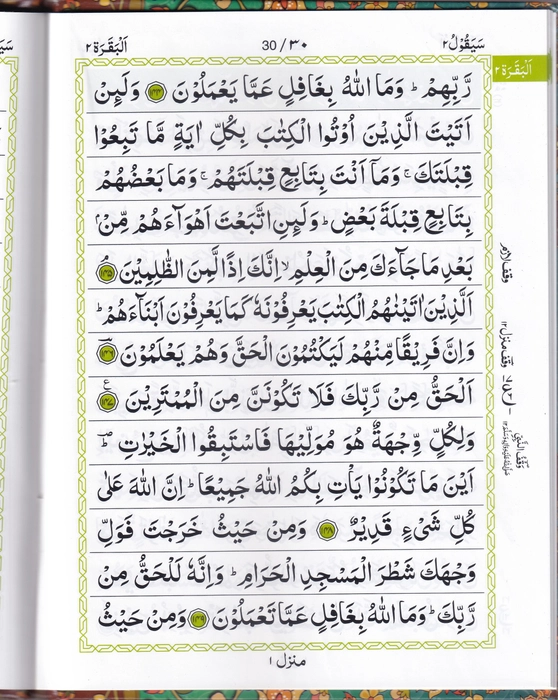 سَيَقُوْلُ ٢
30/٣٠
اَلْبَقَرَة ٢
اَلْبَقَرَة ٢
رَّبِّهِمْ ؕ وَمَا اللّٰهُ بِغَافِلٍ عَمَّا يَعْمَلُوْنَ ﴿۱۴۴﴾ وَلَئِنْ
اَتَيْتَ الَّذِيْنَ اُوْتُوا الْكِتٰبَ بِكُلِّ اٰيَةٍ مَّا تَبِعُوْا
قِبْلَتَكَ ۚ وَمَآ اَنْتَ بِتَابِعٍ قِبْلَتَهُمْ ۚ وَمَا بَعْضُهُمْ
بِتَابِعٍ قِبْلَةَ بَعْضٍ ؕ وَلَئِنِ اتَّبَعْتَ اَهْوَآءَهُمْ مِّنْۢ
بَعْدِ مَا جَآءَكَ مِنَ الْعِلْمِ ۙ اِنَّكَ اِذًا لَّمِنَ الظّٰلِمِيْنَ ﴿۱۴۵﴾ۘ
اَلَّذِيْنَ اٰتَيْنٰهُمُ الْكِتٰبَ يَعْرِفُوْنَهٗ كَمَا يَعْرِفُوْنَ اَبْنَآءَهُمْ ؕ
وَاِنَّ فَرِيْقًا مِّنْهُمْ لَيَكْتُمُوْنَ الْحَقَّ وَهُمْ يَعْلَمُوْنَ ﴿۱۴۶﴾ؔ
اَلْحَقُّ مِنْ رَّبِّكَ فَلَا تَكُوْنَنَّ مِنَ الْمُمْتَرِيْنَ ﴿۱۴۷﴾ ع
وَلِكُلٍّ وِّجْهَةٌ هُوَ مُوَلِّيْهَا فَاسْتَبِقُوا الْخَيْرٰتِ ؕؔ
اَيْنَ مَا تَكُوْنُوْا يَاْتِ بِكُمُ اللّٰهُ جَمِيْعًا ؕ اِنَّ اللّٰهَ عَلٰى
كُلِّ شَيْءٍ قَدِيْرٌ ﴿۱۴۸﴾ وَمِنْ حَيْثُ خَرَجْتَ فَوَلِّ
وَجْهَكَ شَطْرَ الْمَسْجِدِ الْحَرَامِ ؕ وَاِنَّهٗ لَلْحَقُّ مِنْ
رَّبِّكَ ؕ وَمَا اللّٰهُ بِغَافِلٍ عَمَّا تَعْمَلُوْنَ ﴿۱۴۹﴾ وَمِنْ حَيْثُ
وقف لازم
وقف منزل ۱۲
منزل ۱